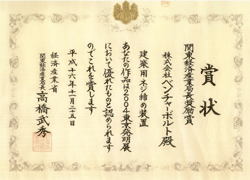 賞状
関東経済産業局長奨励賞
株式会社ベンチャーボルト殿
建築用ネジ締め装置
あなたの作品は2004東京発明展
において優れたものと認められます
のでこれを賞します
平成十六年十一月二十五日
経済産業省
関東経済産業局長
高橋武秀